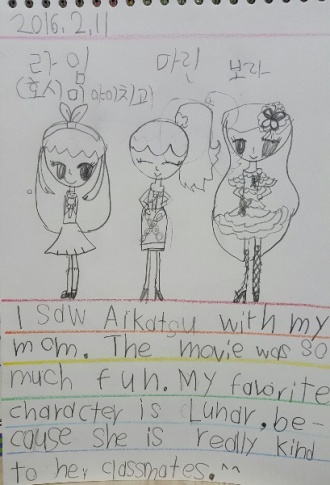 2016.2.11
라임 마린 보라
(호시미야이치고)
I saw Aikatsu with my
mom. The movie was so
much fun. My favorite
character is Lunar, be-
cause she is really kind
to her classmates.^^